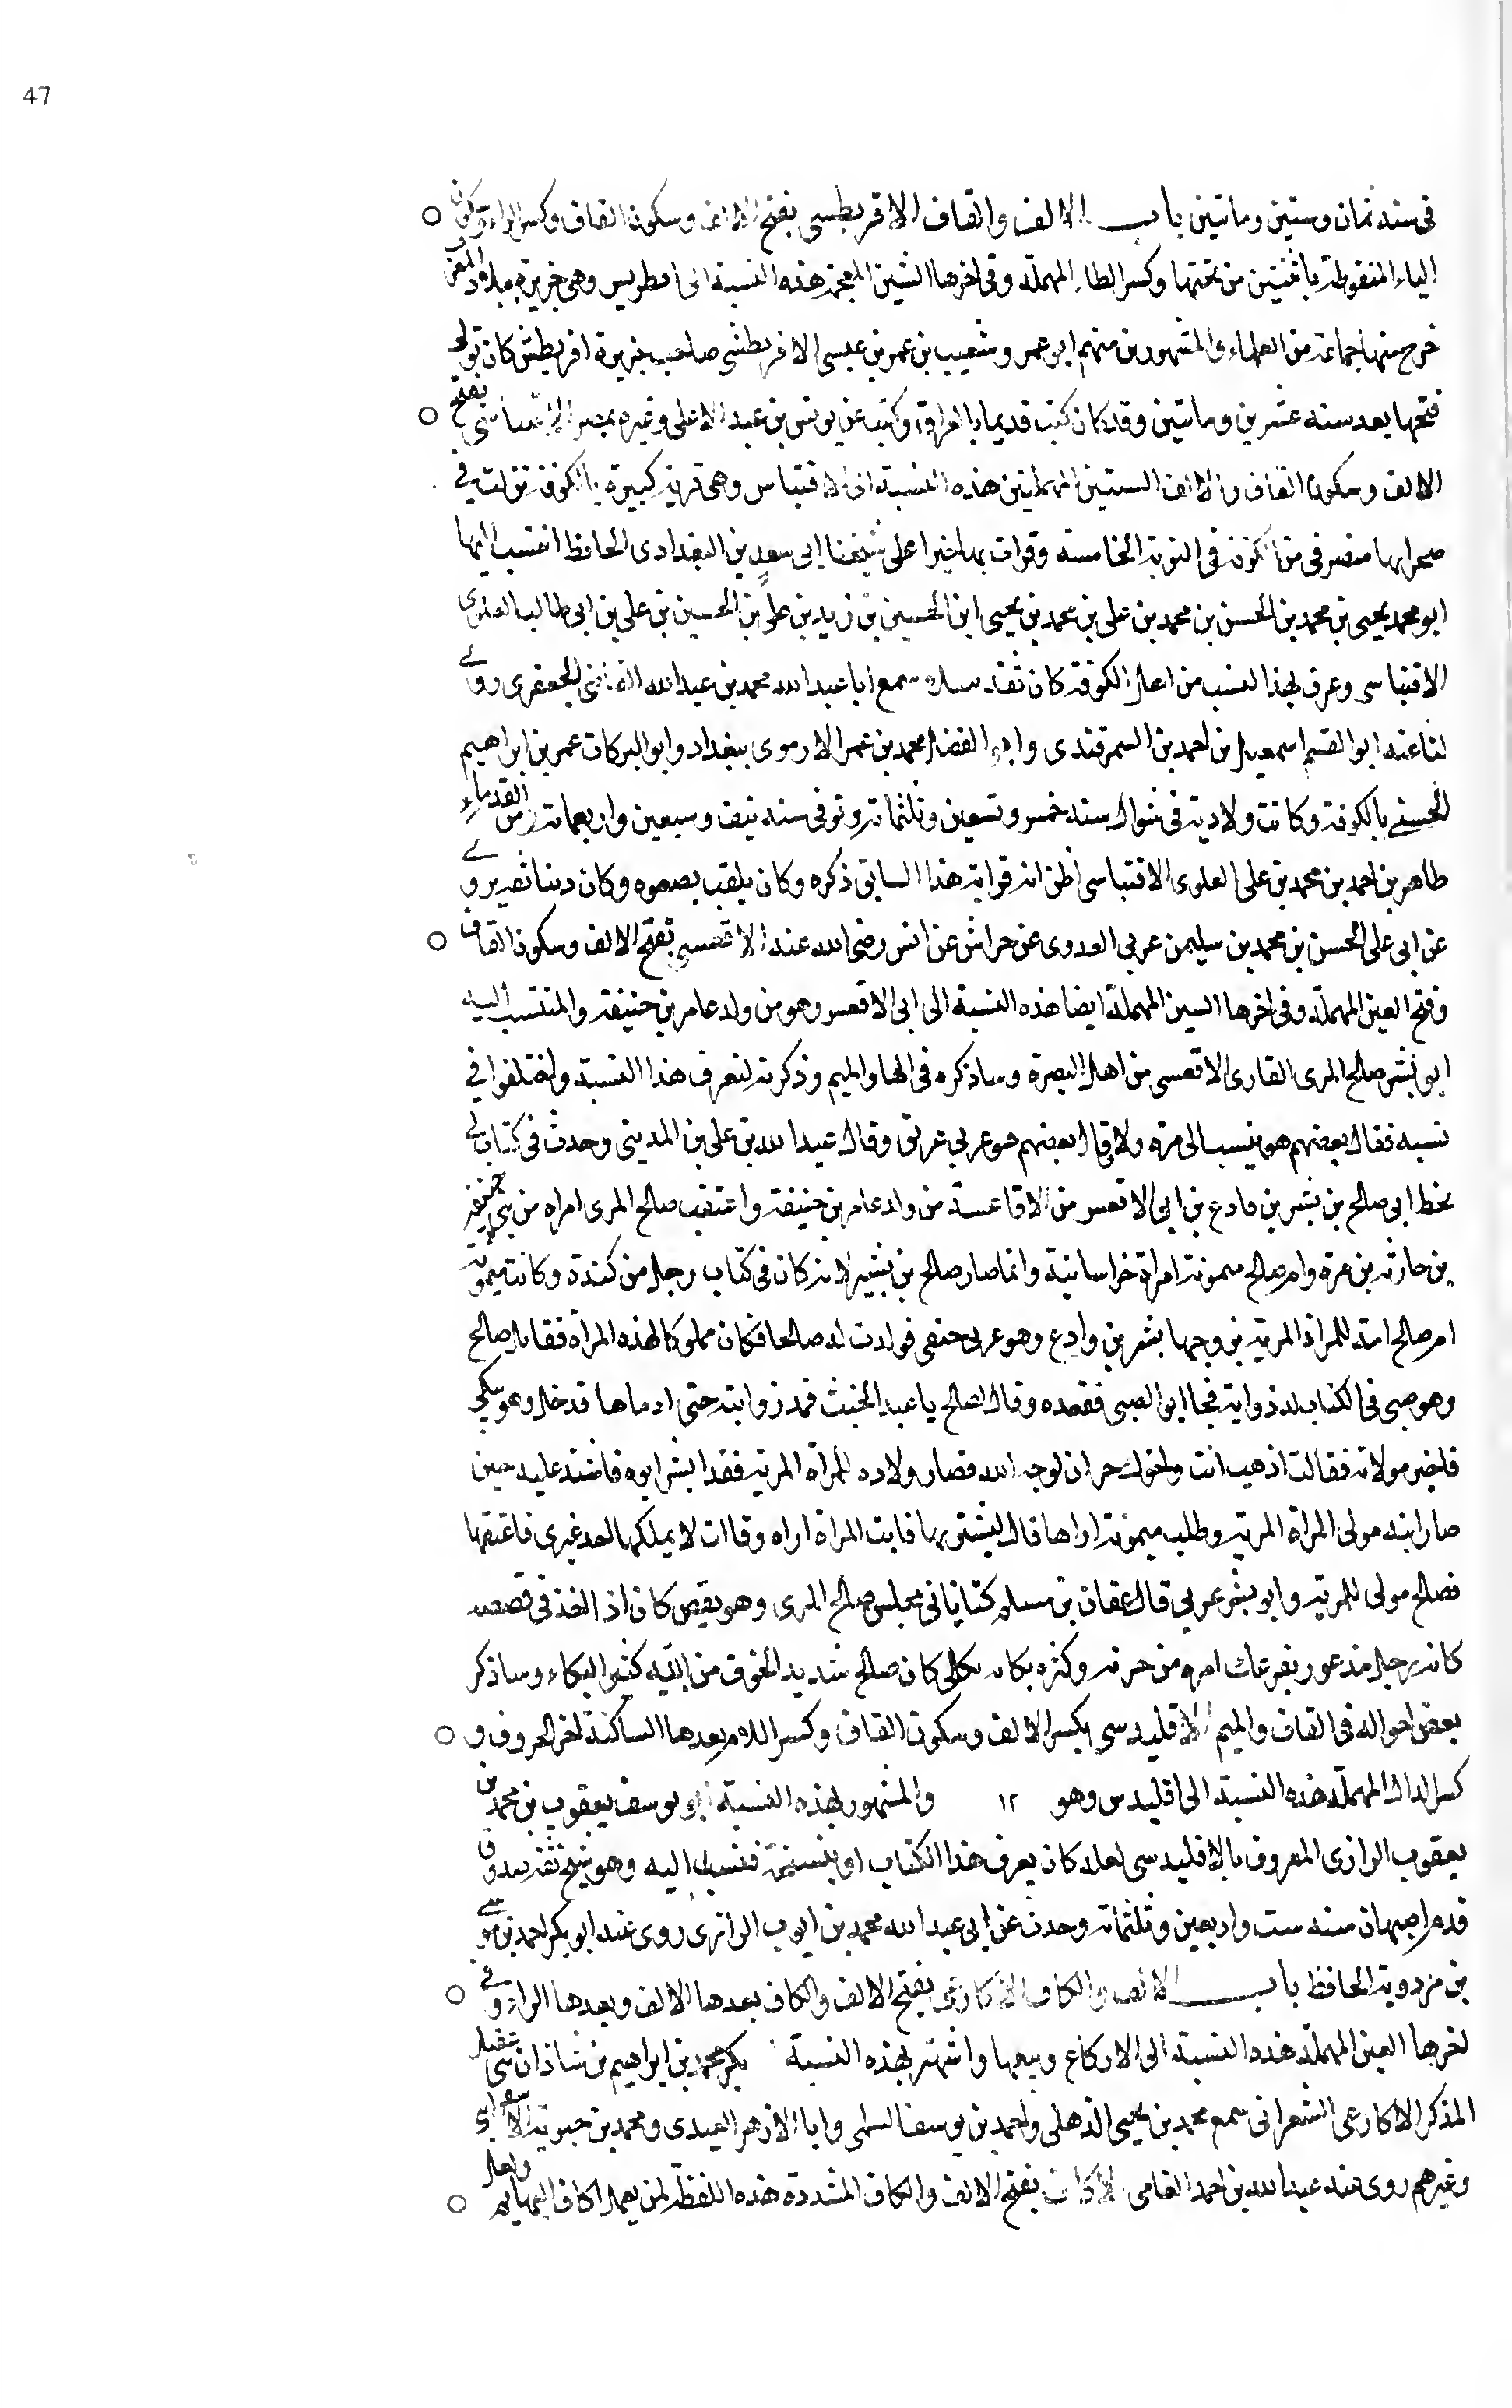 47
في سنه ثمان وستين ومائتين باب الالف والقاف الاقريطسي بفتح الالف وسكون القاف وكسر الراء وسكون
الياء المنقوطة باثنتين من تحتها وكسر الطاء المهملة وفي اخرها الشين المعجمة هذه النسبة الى وهي جزيرة ببلاد المغرب
خرج منها جماعة من العلماء والمشهور بن منهم ابو عمرو شعيب بن عمر بن عيسى الاقريطشي صاحب جزيرة اقريطش كان تولى
فتحها بعد سنه عشرين ومائتين وقد كان كتب قديما بالعراق وكتب عن يونس بن عبد الاعلى وغيره بمصر الاقساسي بفتح
الالف وسكون القاف والالف السينين المهملتين هذه النسبة الى الاقساس وهى قرية كبيرة بالكوفة نزلت في
صحرايها منصرفي من الكوفة في النوبة الخامسة وقرات بها خبرا على شيخنا ابي سعد بن البغدادى الحافظ انتسب اليها
ابو محمد يحيى بن محمد بن الحسن بن محمد بن على بن محمد بن يحيى ابن الحسين بن زيد بن على بن الحسين بن علي بن ابى طالب العلوى
الاقساسي وعرف بهذا النسب من اهل الكوفة كان ثقة سمع ابا عبد الله محمد بن عبد الله القاضى الجعفرى روى
لنا عنه ابو القسم اسمعيل بن احمد بن السمرقندى وابو الفضل محمد بن عمر الارموى ببغداد وابو البركات عمر بن ابراهيم
الحسنى بالكوفة وكانت ولادته فى شوال سنه خمس وتسعين وثلثمائة وتوفى سنه نيف وسبعين واربعمائة ومن القدماء
طاهر بن احمد بن محمد بن على العلوى الاقساسى اظن انه قرابة هذا السابق ذكره وكان يلقب بصعوه وكان دينا ثقة يروى
عن ابى على الحسن بن محمد بن سليمن عربي العدوى عن حراش عن انس رضى الله عنه الاقعسي بفتح الالف وسكون القاف
وفتح العين المهملة وفى اخرها السين المهملة ايضا هذه النسبة الى ابى الاقعس وهو من ولد عامر بن حنيفة والمنتسب اليه
ابو بشر صالح المرى القارى الاقعسى من اهل البصرة وساذكره فى الها والميم وذكرته لتعرف هذا النسبة واختلفوا في
نسبه فقال بعضهم هو ينسب الى مرة ولاء وقال بعضهم هو عربي عريق وقال عبد الله بن على بن المدينى وحدث فى كتاب لى
بخط ابى صالح بن بشر بن فادع بن ابى الاقعس من الاقاعسة من ولد عامر بن حنيفة واعتقت صالح المرى امراه من بنى حنيفة
بن حارثة بن مرة وام صالح ميمونة امراة خراسانية وانما صار صالح بن بشير لانه كان فى كتاب رجل من كندة وكانت ميمونة
ام صالح امة للمراة المرية بزوجها بشر بن وادع وهو عربى حنفى فولدت له صالحا فكان مملوكا لهذه المراة فقال صالح
وهو صبى فى الكتاب له ذوابة فجا ابو الصبى فقعده وقال لصالح يا عبد الخبث فمد ذوابته حتى ادماها قدخل وهو يبكى
فاخبر مولاته فقالت اذهب انت واخوك حران لوجه الله فصار ولاده للمراة المرية فقد ابشر ابوه فاشتد عليه حين
صار ابنه مولى المراة المرية وطلب ميمونة اراها قال ليشتريها فابت المراة اراه وقالت لا يملكها احد غيرى فاعتقها
فصالح مولى للمرية وابو بشر عربي قال عفان بن مسلم كنا ناتى مجلس صالح المرى وهو يقص كان اذا اخذ فى قصصه
كانه رجل مذعور يفزعك امره من حزنه وكثره بكائه كالثكلى كان صالح شديد الخوف من الله كثير البكاء وساذكر
بعض احواله فى القاف والميم الاقليدسى بكسر الالف وسكون القاف وكسر اللام بعدها الساكنة اخر الحروف و
كسر الدال المهملة هذه النسبة الى اقليدس وهو ١٢ والمشهور بهذه النسبة ابو يوسف يعقوب بن محمد بن
يعقوب الرازى المعروف بالاقليدسى لعله كان يعرف هذا الكتاب او ينسخه فنسب اليه وهو شيخ ثقة صدوق
قدم اصبهان سنه ست واربعين وثلثمائة وحدث عن ابى عبد الله محمد بن ايوب الرازى روى عنه ابو بكر احمد بن موسى
بن مردوية الحافظ باب الالف والكاف الاكارعى بفتح الالف والكاف بعدها الالف وبعدها الراء وفى
اخرها العين المهملة هذه النسبة الى الاكارع وبيعها واشتهر بهذه النسبة بكر محمد بن ابراهيم بن شاذان
المذكر الاكارعى الشعرانى سمع محمد بن يحيى الذهلى واحمد بن يوسف السلمى وابا الازهر العبدى ومحمد بن حيوية الاسفراينى
وغيرهم روى عنه عبد الله بن احمد الفامى الاكاف بفتح الالف والكاف المشددة هذه اللفظة لمن يعمل اكاف البهايم ولعل